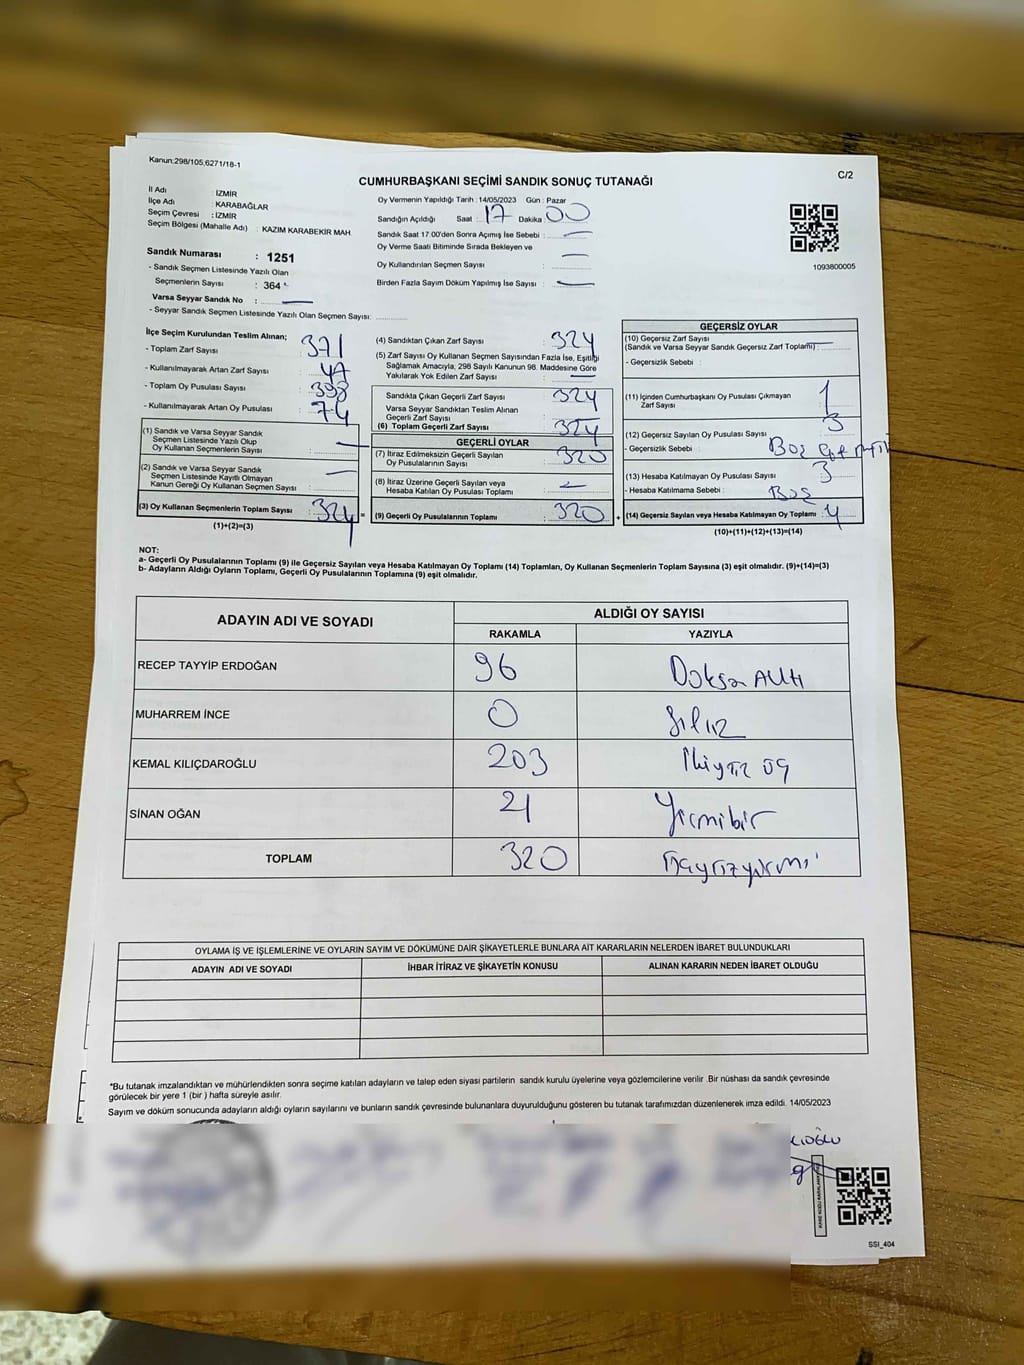 Kanun:298/105,6271/18-1
C/2
CUMHURBAŞKANI SEÇİMİ SANDIK SONUÇ TUTANAĞI
İl Adı : İZMİR
İlçe Adı : KARABAĞLAR
Seçim Çevresi : İZMİR
Seçim Bölgesi (Mahalle Adı) : KAZIM KARABEKIR MAH
Sandık Numarası : 1251
- Sandık Seçmen Listesinde Yazılı Olan
Seçmenlerin Sayısı : 364
Varsa Seyyar Sandık No :
- Seyyar Sandık Seçmen Listesinde Yazılı Olan Seçmen Sayısı:
Oy Vermenin Yapıldığı Tarih :14/05/2023 Gün : Pazar
Sandığın Açıldığı Saat : 17 Dakika : 00
Sandık Saat 17:00'den Sonra Açımış İse Sebebi : —
Oy Verme Saati Bitiminde Sırada Bekleyen ve
Oy Kullandırılan Seçmen Sayısı : —
Birden Fazla Sayım Döküm Yapılmış İse Sayısı : —
1093800005
İlçe Seçim Kurulundan Teslim Alınan;
- Toplam Zarf Sayısı : 371
- Kullanılmayarak Artan Zarf Sayısı : 47
- Toplam Oy Pusulası Sayısı : 398
- Kullanılmayarak Artan Oy Pusulası : 74
(1) Sandık ve Varsa Seyyar Sandık
Seçmen Listesinde Yazılı Olup
Oy Kullanan Seçmenlerin Sayısı : —
(2) Sandık ve Varsa Seyyar Sandık
Seçmen Listesinde Kayıtlı Olmayan
Kanun Gereği Oy Kullanan Seçmen Sayısı : —
(3) Oy Kullanan Seçmenlerin Toplam Sayısı : 324 =
(1)+(2)=(3)
(4) Sandıktan Çıkan Zarf Sayısı : 324
(5) Zarf Sayısı Oy Kullanan Seçmen Sayısından Fazla İse, Eşitliği
Sağlamak Amacıyla, 298 Sayılı Kanunun 98. Maddesine Göre
Yakılarak Yok Edilen Zarf Sayısı : —
Sandıkta Çıkan Geçerli Zarf Sayısı : 324
Varsa Seyyar Sandıktan Teslim Alınan
Geçerli Zarf Sayısı :
(6) Toplam Geçerli Zarf Sayısı : 324
GEÇERLİ OYLAR
(7) İtiraz Edilmeksizin Geçerli Sayılan
Oy Pusulalarının Sayısı : 320
(8) İtiraz Üzerine Geçerli Sayılan veya
Hesaba Katılan Oy Pusulaları Toplamı : —
(9) Geçerli Oy Pusulalarının Toplamı : 320 +
GEÇERSİZ OYLAR
(10) Geçersiz Zarf Sayısı
(Sandık ve Varsa Seyyar Sandık Geçersiz Zarf Toplamı) : —
- Geçersizlik Sebebi :
(11) İçinden Cumhurbaşkanı Oy Pusulası Çıkmayan
Zarf Sayısı : 1
(12) Geçersiz Sayılan Oy Pusulası Sayısı : 3
- Geçersizlik Sebebi : Boş
(13) Hesaba Katılmayan Oy Pusulası Sayısı : 3
- Hesaba Katılmama Sebebi : Boş
(14) Geçersiz Sayılan veya Hesaba Katılmayan Oy Toplamı : 4
(10)+(11)+(12)+(13)=(14)
NOT:
a- Geçerli Oy Pusulalarının Toplamı (9) ile Geçersiz Sayılan veya Hesaba Katılmayan Oy Toplamı (14) Toplamları, Oy Kullanan Seçmenlerin Toplam Sayısına (3) eşit olmalıdır. (9)+(14)=(3)
b- Adayların Aldığı Oyların Toplamı, Geçerli Oy Pusulalarının Toplamına (9) eşit olmalıdır.
ADAYIN ADI VE SOYADI ALDIĞI OY SAYISI
RAKAMLA YAZIYLA
RECEP TAYYİP ERDOĞAN 96 Doksan Altı
MUHARREM İNCE 0 Sıfır
KEMAL KILIÇDAROĞLU 203 İkiyüz üç
SİNAN OĞAN 21 Yirmibir
TOPLAM 320 Üçyüzyirmi
OYLAMA İŞ VE İŞLEMLERİNE VE OYLARIN SAYIM VE DÖKÜMÜNE DAİR ŞİKAYETLERLE BUNLARA AİT KARARLARIN NELERDEN İBARET BULUNDUKLARI
ADAYIN ADI VE SOYADI İHBAR İTİRAZ VE ŞİKAYETİN KONUSU ALINAN KARARIN NEDEN İBARET OLDUĞU
*Bu tutanak imzalandıktan ve mühürlendikten sonra seçime katılan adayların ve talep eden siyasi partilerin sandık kurulu üyelerine veya gözlemcilerine verilir .Bir nüshası da sandık çevresinde
görülecek bir yere 1 (bir ) hafta süreyle asılır.
Sayım ve döküm sonucunda adayların aldığı oyların sayılarını ve bunların sandık çevresinde bulunanlara duyurulduğunu gösteren bu tutanak tarafımızdan düzenlenerek imza edildi. 14/05/2023
SSI_404